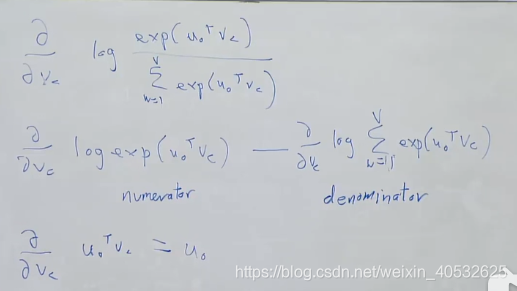 ∂/∂v_c log exp(u_o^T v_c) / ∑_{w=1}^{V} exp(u_o^T v_c)
∂/∂v_c log exp(u_o^T v_c) — ∂/∂v_c log ∑_{w=1}^{V} exp(u_o^T v_c)
numerator denominator
∂/∂v_c u_o^T v_c = u_o
https://blog.csdn.net/weixin_40532625